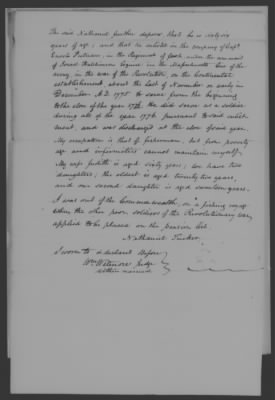 The said Nathaniel further deposes that he is sixty six
years of age; and that he enlisted in the company of Capt
Enoch Putnam, in the Regiment of foot under the command
of Israel Hutchinson Esquire in the Massachusetts line of the
army, in the war of the Revolution on the Continental
establishment, about the last of November or early in
December A.D. 1775 to serve from the beginning
to the close of the year 1776. He did serve as a soldier
during all of the year 1776 pursuant to said inlist-
ment, and was discharged at the close of said year.
My occupation is that of fisherman, but from poverty
age and infirmities cannot maintain myself.
My wife Judith is aged sixty years; we have two
daughters; the oldest is aged twenty two years,
and our second daughter is aged seventeen years.
I was out of the Commonwealth, on a fishing voyage
when the other poor soldiers of the Revolutionary war,
applied to be placed on the pension list.
Nathaniel Tucker
Sworn to & declared before
Wm Wetmore Judge
within named